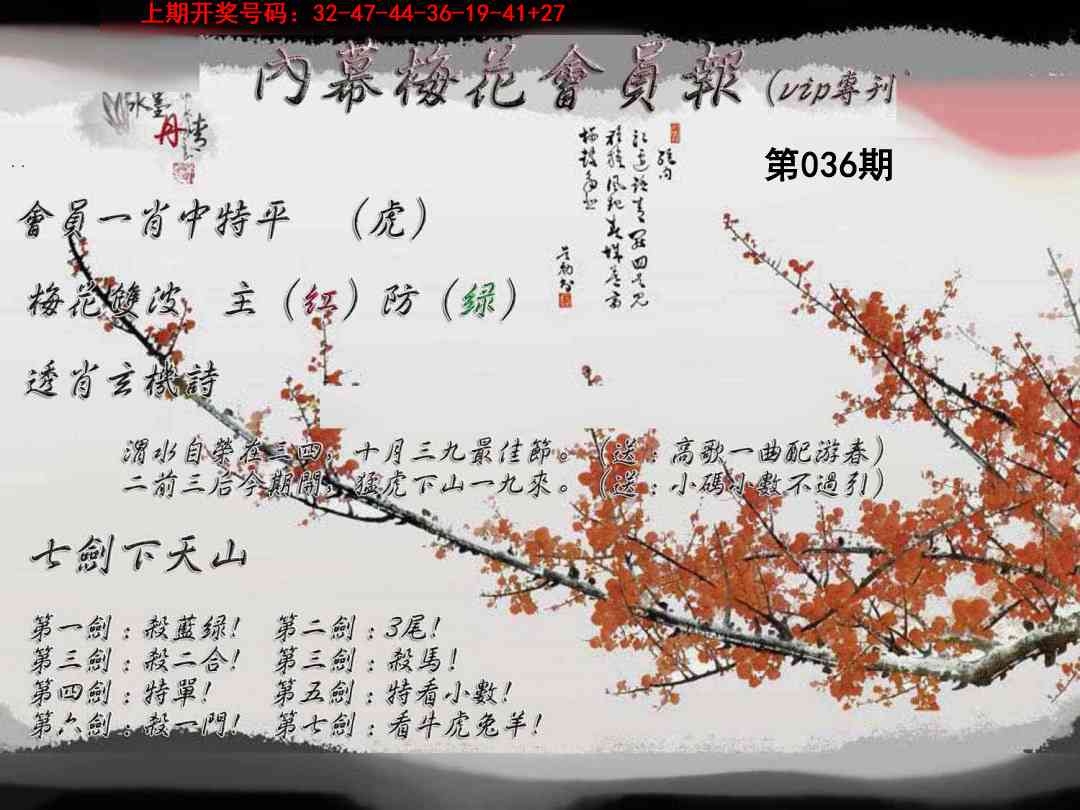 上期开奖号码：32-47-44-36-19-41+27
內幕梅花會員報（vip專刊
水墨丹青
第036期
會員一肖中特平　（虎）
梅花雙波　主（红）防（绿）
透肖玄機詩
渭水自榮在三四，十月三九最佳節。（送：高歌一曲配游春）
二前三后今期開，猛虎下山一九來。（送：小碼小數不過引）
七劍下天山
第一劍：殺藍绿！　第二劍：3尾！
第三劍：殺二合！　第三劍：殺馬！
第四劍：特單！　第五劍：特看小數！
第六劍：殺一門！　第七劍：看牛虎兔羊！